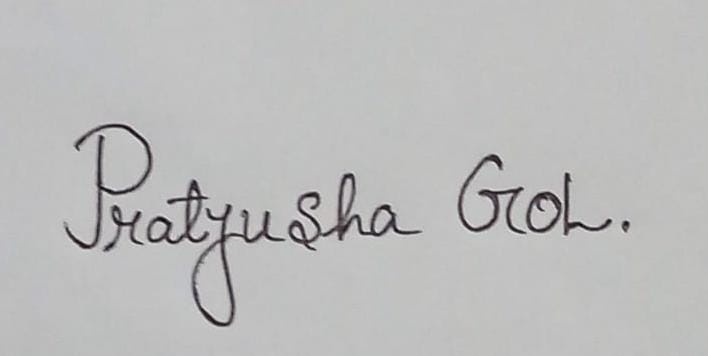 Pratyusha Gol.